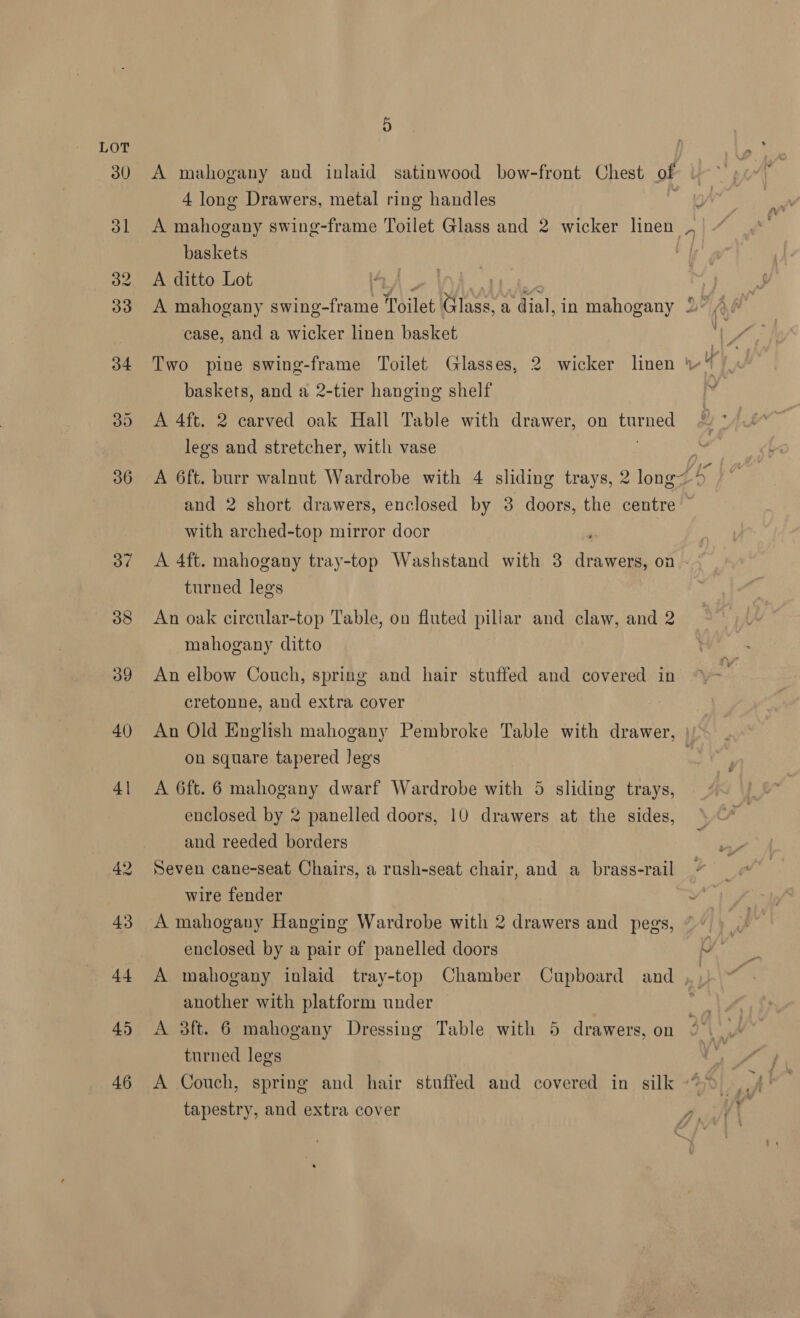 5
LOT
30 A mahogany and inlaid satinwood bow-front Chest of
4 long Drawers, metal ring handles
31 A mahogany swing-frame Toilet Glass and 2 wicker linen
baskets
32 A ditto Lot
33 A mahogany swing-frame Toilet Glass, a dial, in mahogany
case, and a wicker linen basket
34 Two pine swing-frame Toilet Glasses, 2 wicker linen
baskets, and a 2-tier hanging shelf
35 A 4ft. 2 carved oak Hall Table with drawer, on turned
legs and stretcher, with vase
36 A 6ft. burr walnut Wardrobe with 4 sliding trays, 2 long
and 2 short drawers, enclosed by 3 doors, the centre
with arched-top mirror door
37 A 4ft. mahogany tray-top Washstand with 3 drawers, on
turned legs
38 An oak circular-top Table, on fluted pillar and claw, and 2
mahogany ditto
39 An elbow Couch, spring and hair stuffed and covered in
cretonne, and extra cover
40 An Old English mahogany Pembroke Table with drawer,
on square tapered legs
41 A 6ft. 6 mahogany dwarf Wardrobe with 5 sliding trays,
enclosed by 2 panelled doors, 10 drawers at the sides,
and reeded borders
42 Seven cane-seat Chairs, a rush-seat chair, and a brass-rail
wire fender
43 A mahogany Hanging Wardrobe with 2 drawers and pegs,
enclosed by a pair of panelled doors
44 A mahogany inlaid tray-top Chamber Cupboard and
another with platform under
45 A 3ft. 6 mahogany Dressing Table with 5 drawers, on
turned legs
46 A Couch, spring and hair stuffed and covered in silk
tapestry, and extra cover